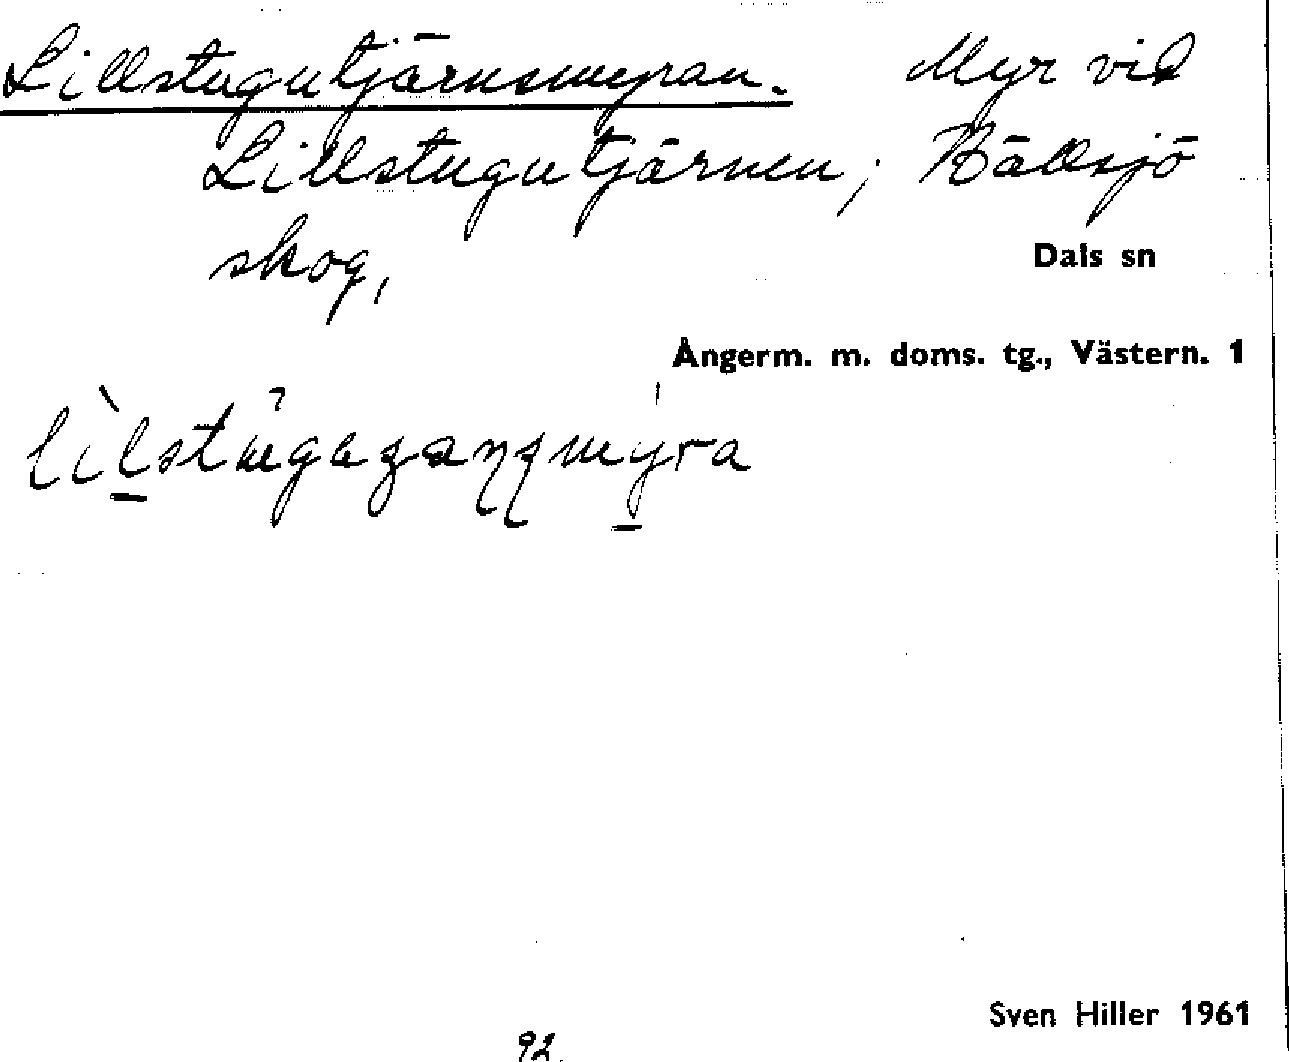 Lillstugutjärnsmyran. Myr vid
Lillstugutjärnen, Bällsjö
skog,
Dals sn
Ångerm. m. doms. tg., Västern. 1
Sven Hiller 1961
92.